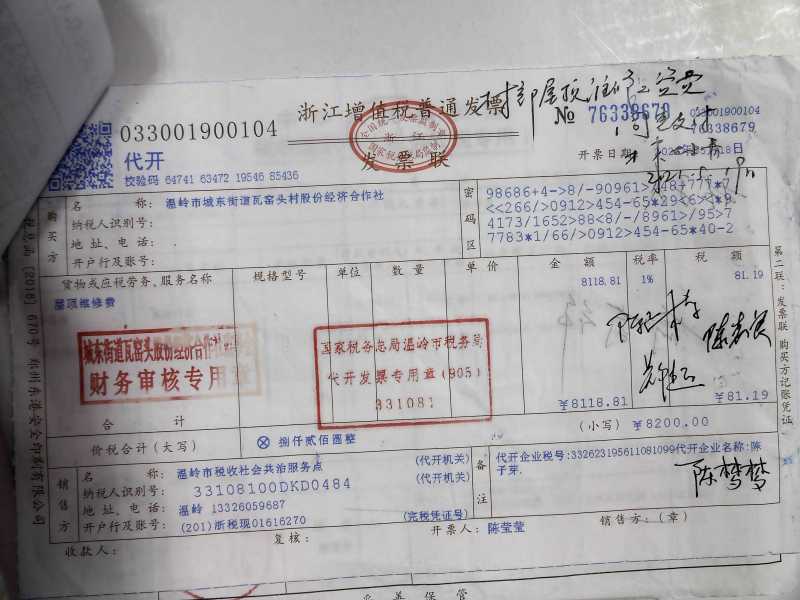 浙江增值税普通发票
发票联
033001900104
代开
校验码 64741 63472 19546 85436
村部屋顶
№ 76338679
033001900104
76338679
开票日期
全国统一发票监制章
国家税务总局监制
购买方
名 称: 温岭市城东街道瓦窑头村股份经济合作社
纳税人识别号:
地 址、电 话:
开户行及账号:
密码区
98686+4->8/-90961>
<<266/>0912>454-65*29<6
4173/1652>88<8/-/8961>/95>7
7783*1/66/>0912>454-65*40-2
货物或应税劳务、服务名称 规格型号 单位 数量 单价 金额 税率 税额
屋顶维修费 8118.81 1% 81.19
城东街道瓦窑头股份经济合作社
财务审核专用章
国家税务总局温岭市税务局
代开发票专用章(905)
331081
合 计 ¥8118.81 ¥81.19
价税合计(大写) ⊗ 捌仟贰佰圆整 (小写) ¥8200.00
销售方
名 称: 温岭市税收社会共治服务点 (代开机关)
纳税人识别号: 33108100DKD0484 (代开机关)
地 址、电 话: 温岭 13326059687
开户行及账号: (201)浙税现01616270 (完税凭证号)
备注
代开企业税号:332623195611081099代开企业名称:陈
子芽.
陈梦梦
收款人: 复核: 开票人: 陈莹莹 销售方:(章)
第二联:发票联 购买方记账凭证